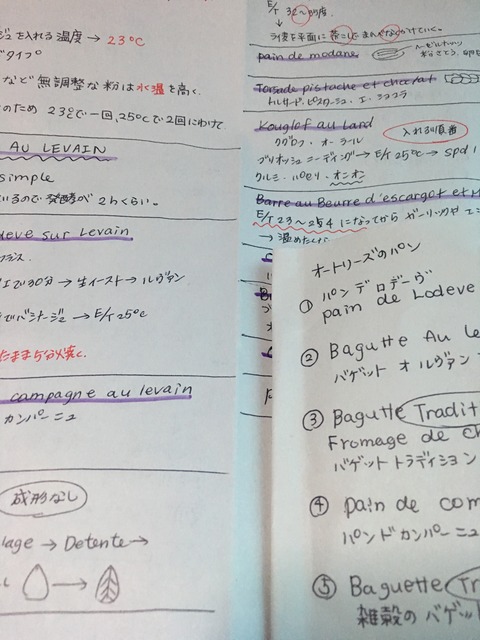 ジュを入れる温度→ 23℃
など 無調整な粉は水温を高く.
のため 23℃で一回,25℃で2回にわけて
AU LEVAIN
simple
いるので発酵が 2hくらい。
sur Levain
で30分→生イースト→ルヴァン
→ E/T 25℃
たまま5分焼く.
campagne au levain
カンパーニュ
成形なし
lage → Detente→
E/T
pain de modane
Torsade pistache et chocolat
トルサード・ピスターシュ・エ・ショコラ
Kouglof au Lard
入れる順番
クグロフ・オ・ラール
ブリオッシュ ニーディング→ E/T 25℃→ spd 1
クルミ・パセリ・オニオン
Barre au Beurre d'escargot et
になってから ガーリックや
オートリーズのパン
① パン デ ロデーヴ
pain de Lodeve
② Bagutte Au Le
バゲット オ ルヴァン
③ Bagutte Tradit
Fromage de ch
バゲット トラディション
④ pain de com
パン ド カンパーニュ
⑤ Baguette Tr
雑穀の バゲット